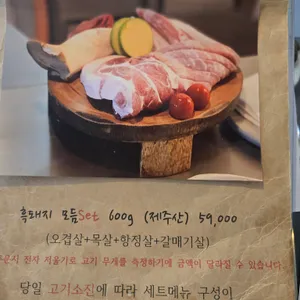 흑돼지 모듬Set 600g (제주산) 59,000
(오겹살+목살+항정살+갈매기살)
문시 전자 저울기로 고기 무게를 측정하기에 금액이 달라질 수 있습니다
당일 고기소진에 따라 세트메뉴 구성이